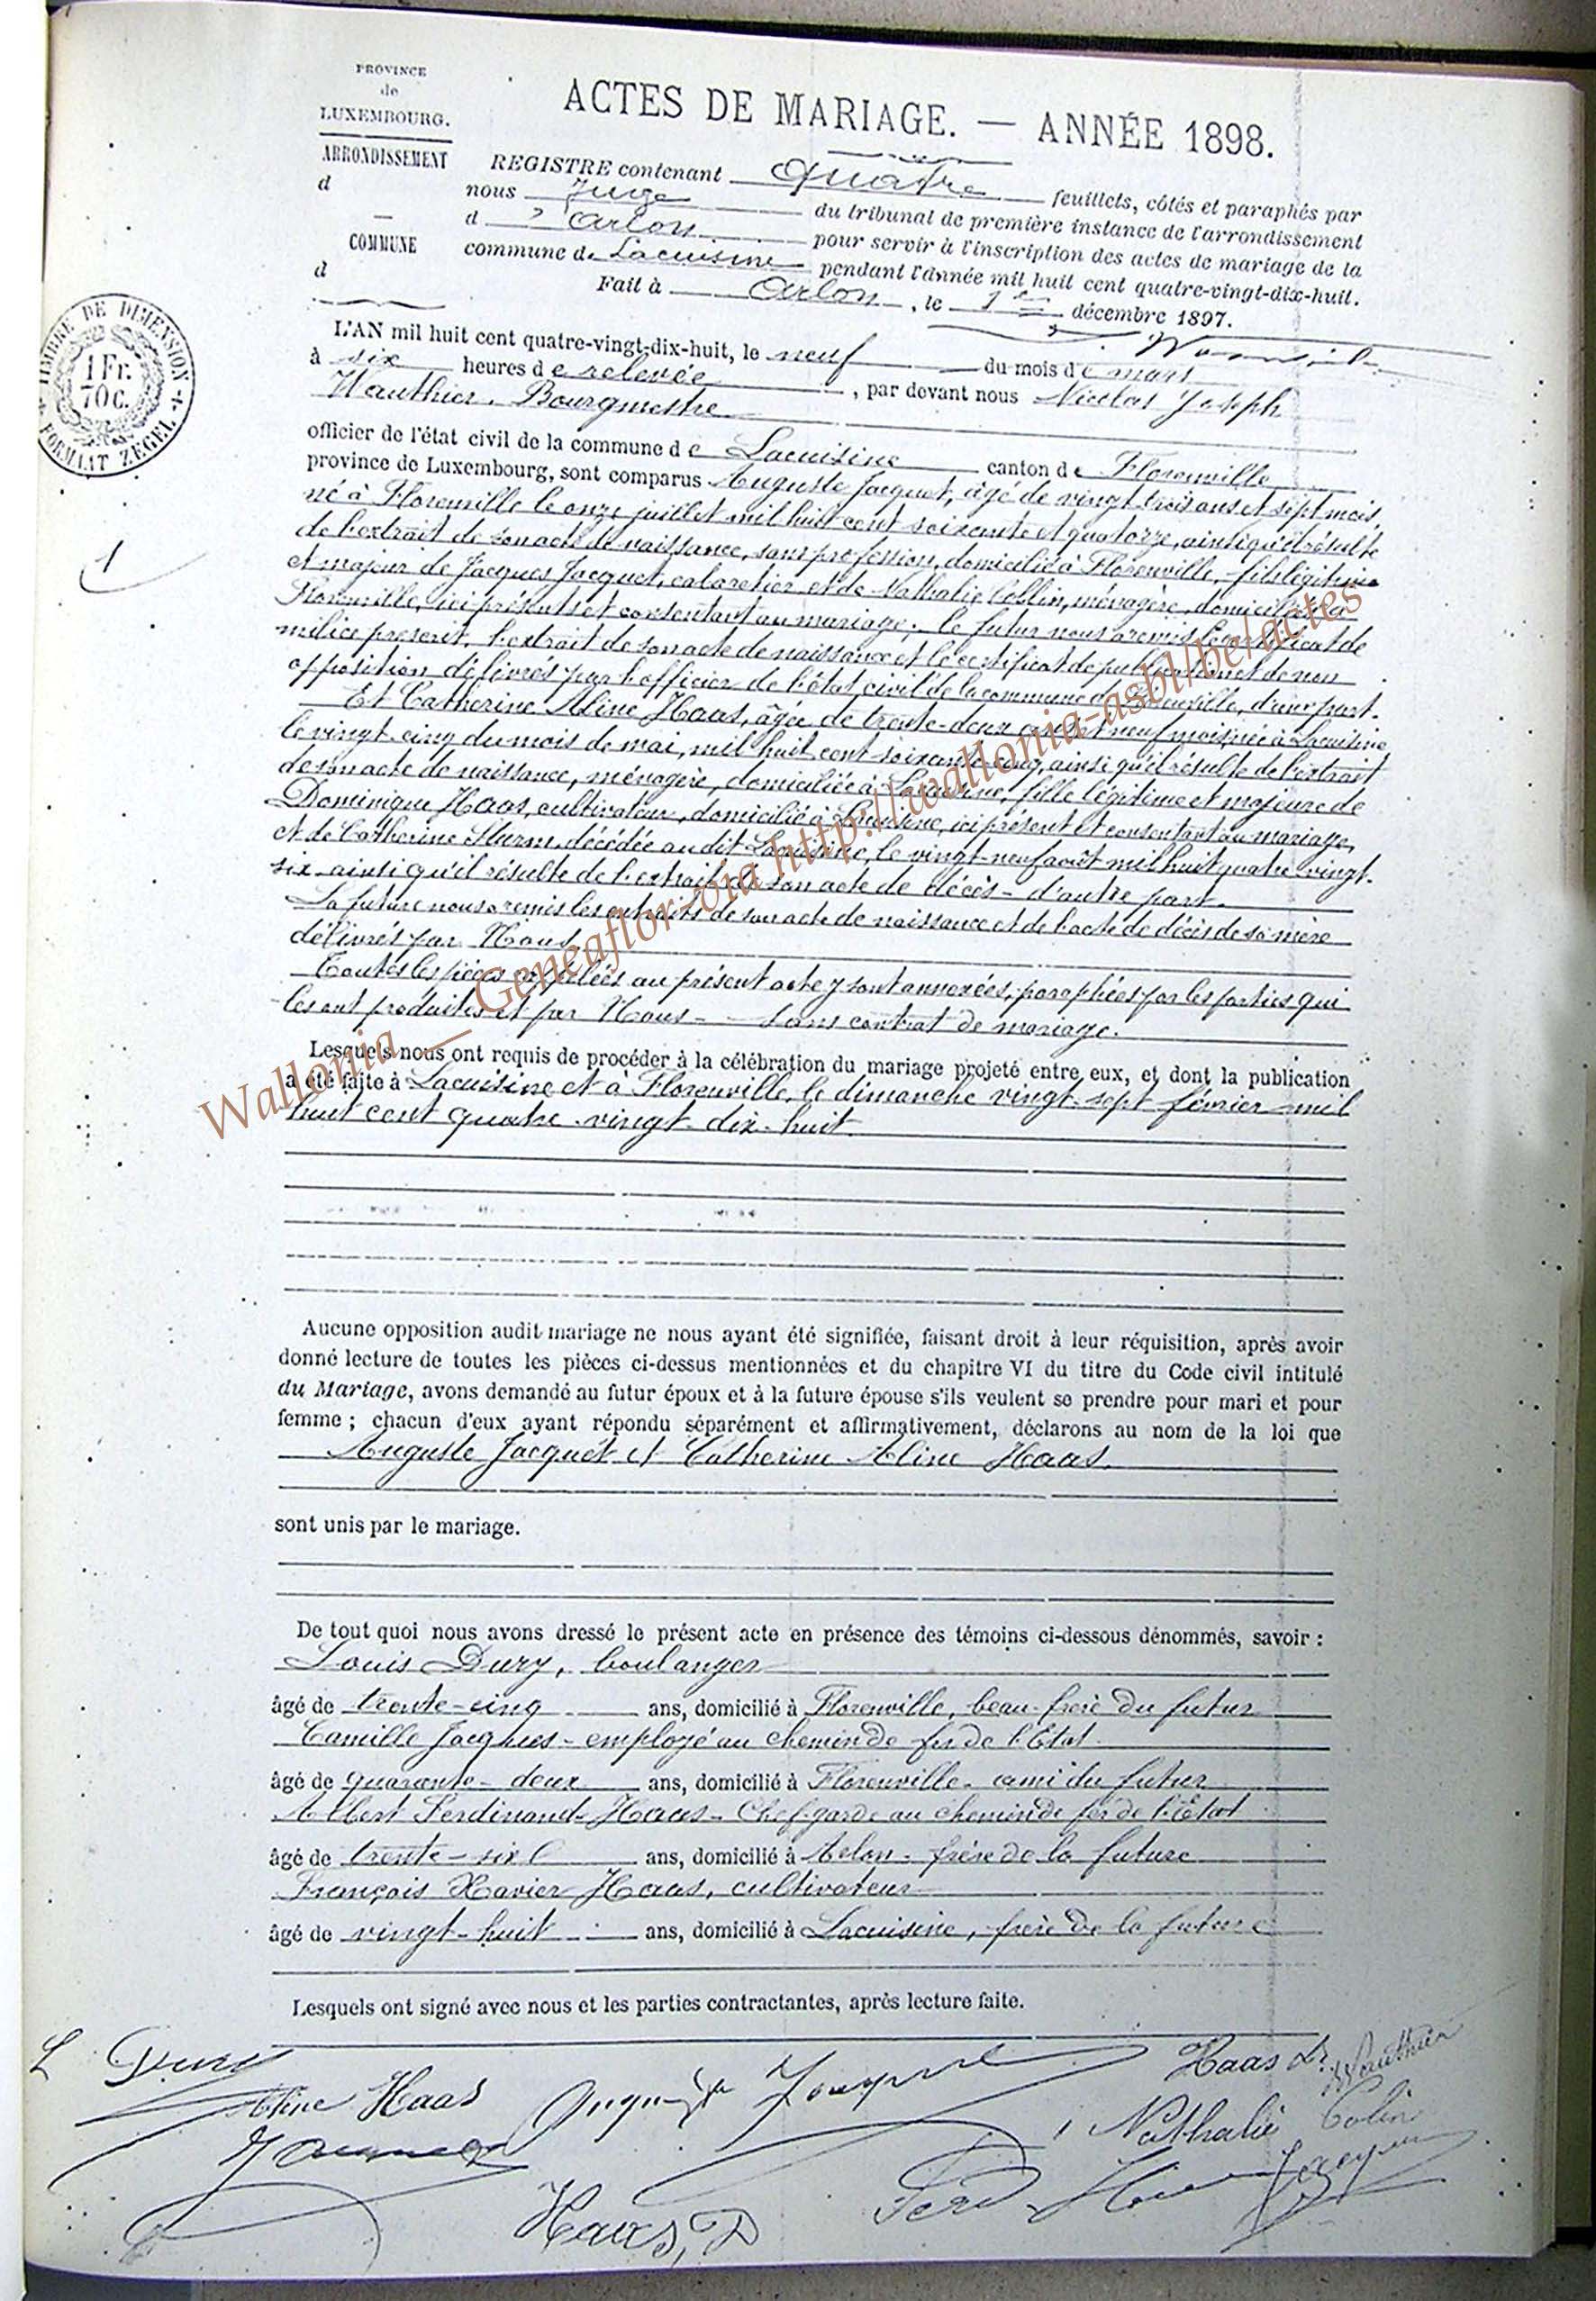 PROVINCE
de
LUXEMBOURG.
ARRONDISSEMENT
d
COMMUNE
d
ACTES DE MARIAGE. — ANNÉE 1898.
REGISTRE contenant Quatre feuillets, côtés et paraphés par
nous Juge du tribunal de première instance de l'arrondissement
d'Arlon pour servir à l'inscription des actes de mariage de la
commune de Lacuisine pendant l'année mil huit cent quatre-vingt-dix-huit.
Fait à Arlon, le 1er décembre 1897.
TIMBRE DE DIMENSION
1 Fr.
70 c.
FORMAAT ZEGEL
1
L'AN mil huit cent quatre-vingt-dix-huit, le neuf du mois de mars
à six heures de relevée, par devant nous Nicolas Joseph
Wauthier, Bourgmestre
officier de l'état civil de la commune de Lacuisine canton de Florenville
province de Luxembourg, sont comparus Auguste Jacquet, âgé de vingt trois ans et sept mois,
né à Florenville le onze juillet mil huit cent soixante et quatorze, ainsi qu'il résulte
de l'extrait de son acte de naissance, sans profession, domicilié à Florenville, fils légitime
et majeur de Jacques Jacquet, cabaretier et de Nathalie Collin, ménagère, domiciliés à
Florenville, ici présents et consentant au mariage; le futur nous a remis le certificat de
milice prescrit, l'extrait de son acte de naissance et le certificat de publication et de non
opposition délivrés par l'officier de l'état civil de la commune de Florenville, d'une part.
Et Catherine Aline Haas, âgée de trente-deux ans et neuf mois, née à Lacuisine
le vingt-cinq du mois de mai, mil huit cent soixante cinq, ainsi qu'il résulte de l'extrait
de son acte de naissance, ménagère, domiciliée à Lacuisine, fille légitime et majeure de
Dominique Haas, cultivateur, domicilié à Lacuisine, ici présent et consentant au mariage,
et de Catherine Sturm, décédée au dit Lacuisine, le vingt-neuf août mil huit quatre vingt-
six ainsi qu'il résulte de l'extrait de son acte de décès - d'autre part.
La future nous a remis les extraits de son acte de naissance et de l'acte de décès de sa mère
délivrés par Nous.
Toutes les pièces rappelées au présent acte y sont annexées, paraphées par les parties qui
les ont produites et par Nous - Sans contrat de mariage.
Lesquels nous ont requis de procéder à la célébration du mariage projeté entre eux, et dont la publication
a été faite à Lacuisine et à Florenville, le dimanche vingt-sept février mil
huit cent quatre-vingt-dix-huit.
Wallonia — Geneaflor-oia http://wallonia-asbl/be/actes
Aucune opposition audit mariage ne nous ayant été signifiée, faisant droit à leur réquisition, après avoir
donné lecture de toutes les pièces ci-dessus mentionnées et du chapitre VI du titre du Code civil intitulé
du Mariage, avons demandé au futur époux et à la future épouse s'ils veulent se prendre pour mari et pour
femme ; chacun d'eux ayant répondu séparément et affirmativement, déclarons au nom de la loi que
Auguste Jacquet et Catherine Aline Haas.
sont unis par le mariage.
De tout quoi nous avons dressé le présent acte en présence des témoins ci-dessous dénommés, savoir :
Louis Dury, boulanger
âgé de trente-cinq ans, domicilié à Florenville, beau-frère du futur
Camille Jacques - employé au chemin de fer de l'Etat
âgé de quarante-deux ans, domicilié à Florenville - ami du futur
Albert Ferdinand Haas - Chef-garde au chemin de fer de l'Etat
âgé de trente-six ans, domicilié à Arlon - frère de la future
François Xavier Haas, cultivateur
âgé de vingt-huit ans, domicilié à Lacuisine, frère de la future
Lesquels ont signé avec nous et les parties contractantes, après lecture faite.
L Dury
Aline Haas
Auguste Jacquet
Haas
Wauthier
Nathalie Colin
Haas, D